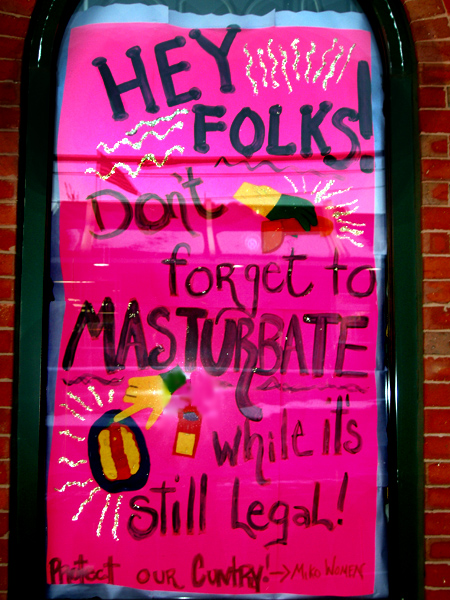 HEY
FOLKS!
Don't
forget to
MASTURBATE
while it's
still Legal!
Protect OUR CUNTRY! → MIKO WOMEN